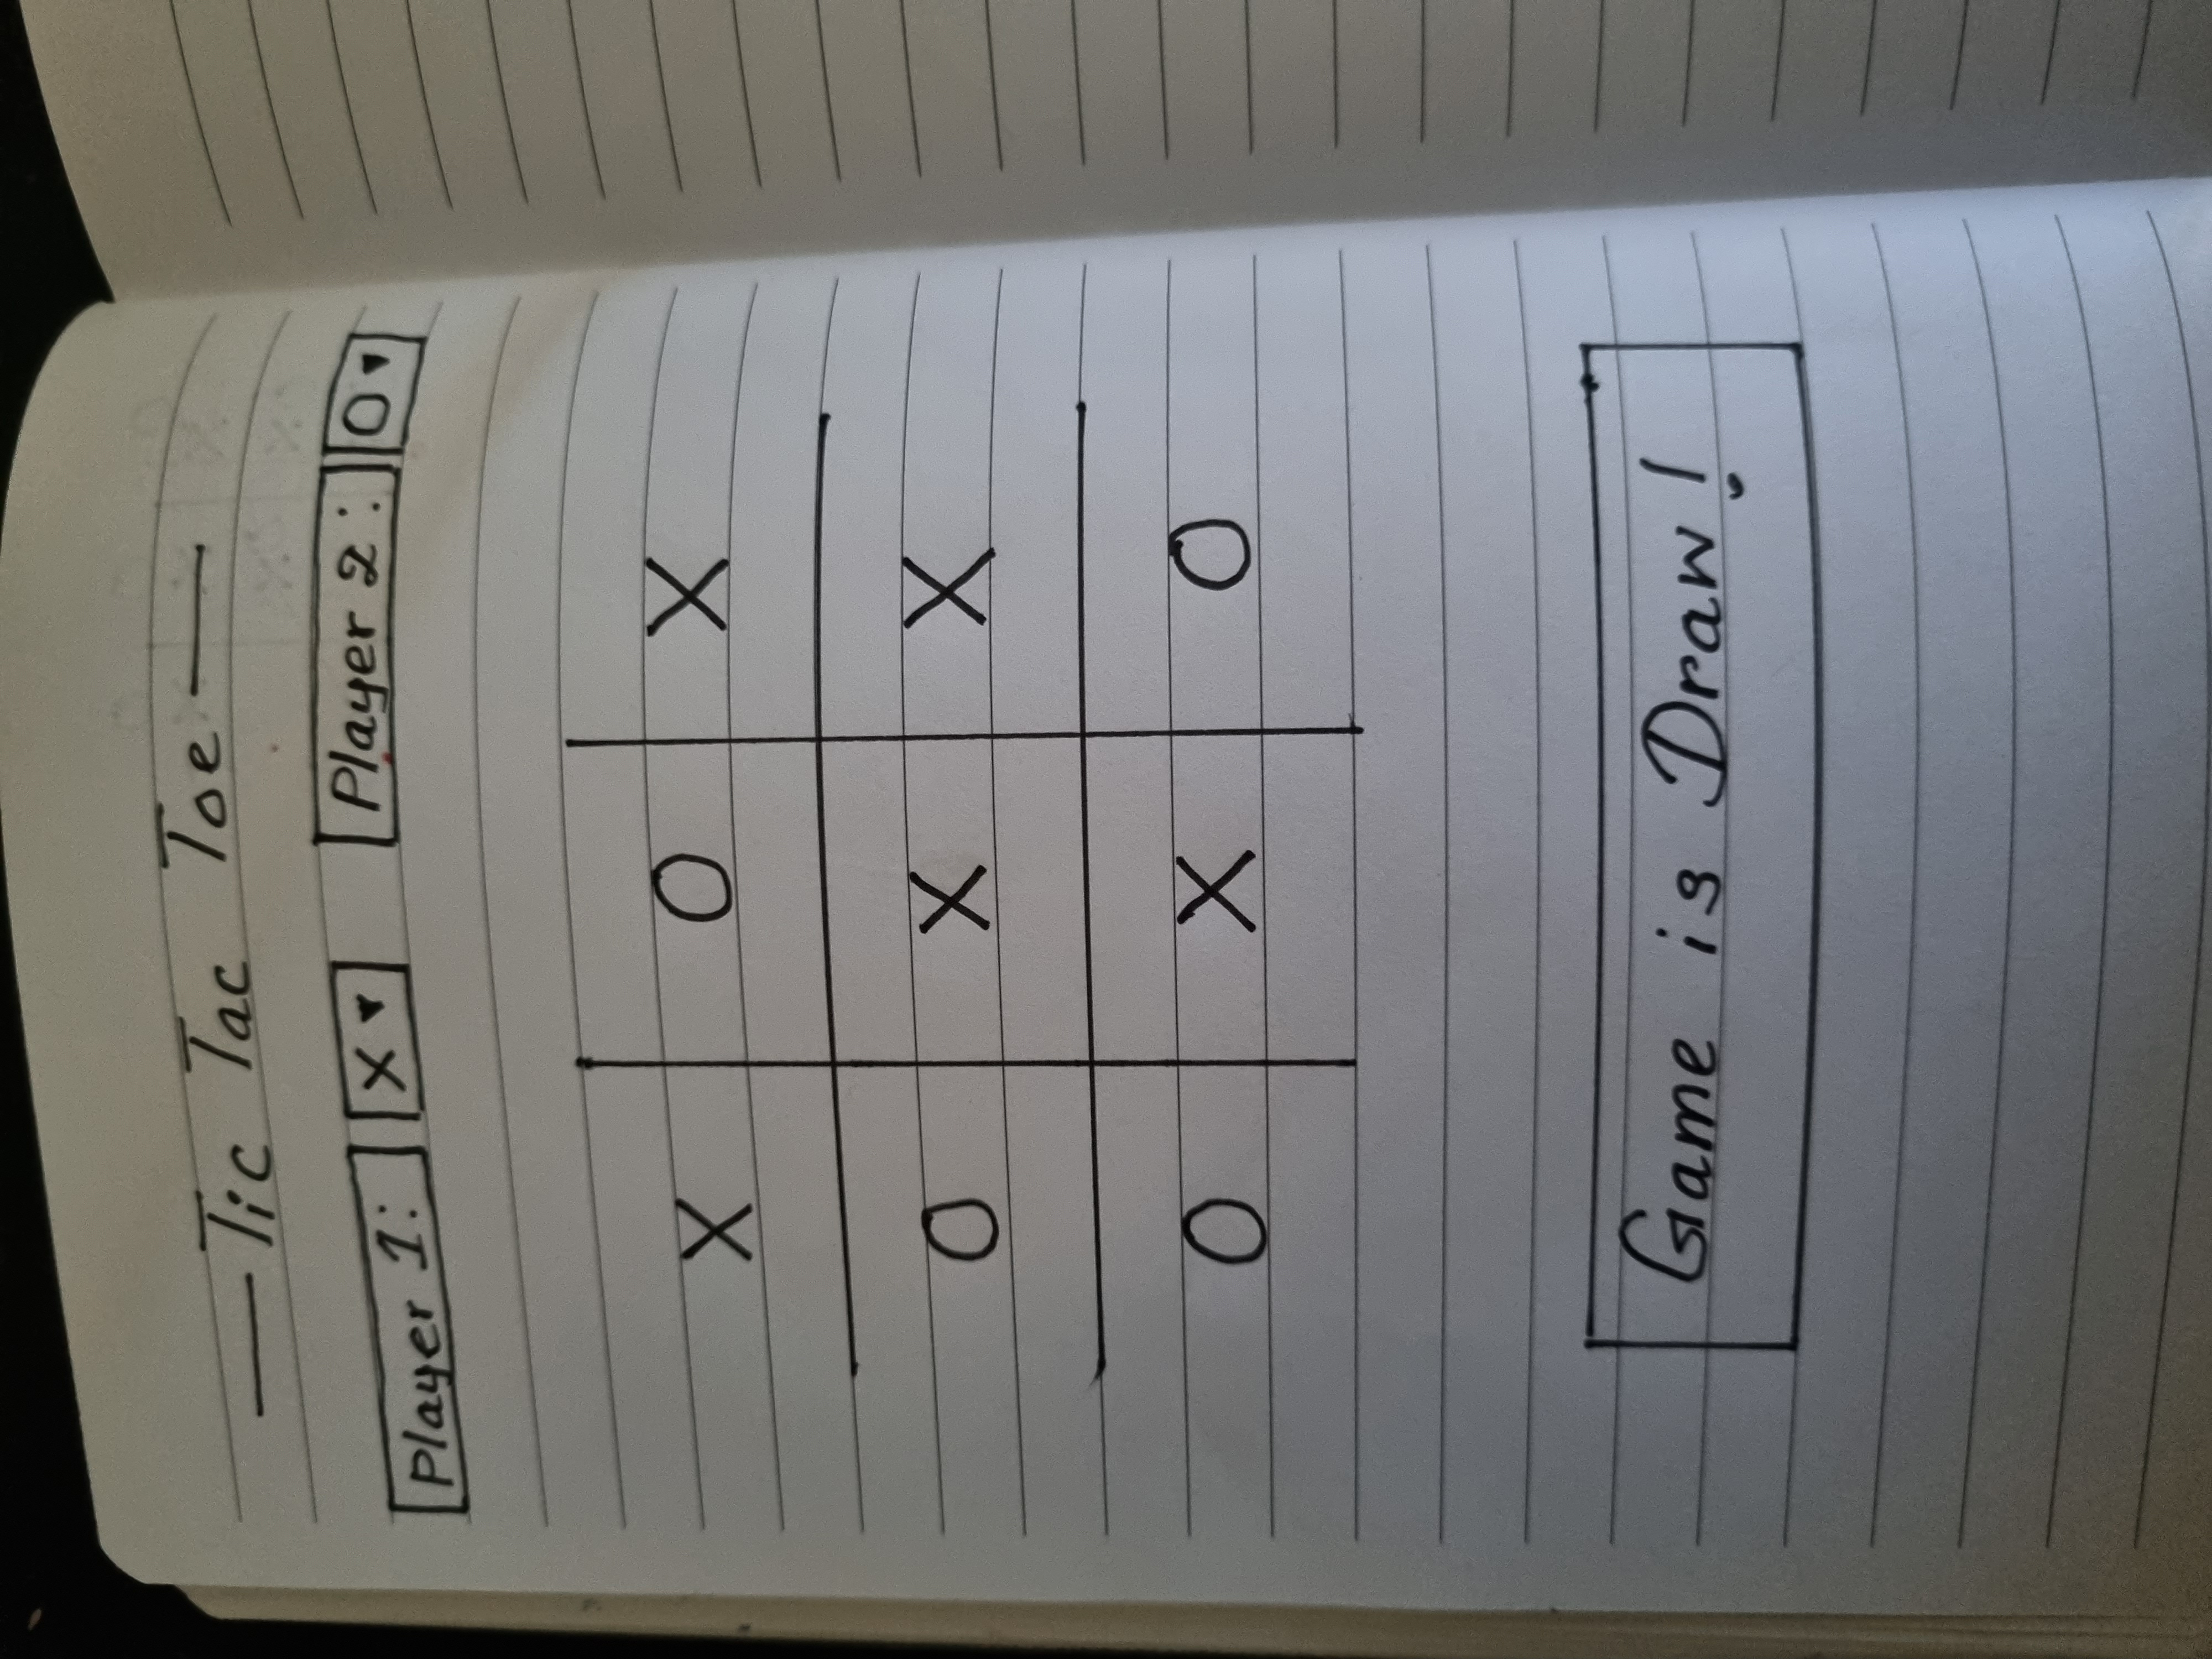 — Tic Tac Toe —
Player 1: X ▾ Player 2: O ▾
X O X
O X X
O X O
Game is Draw!